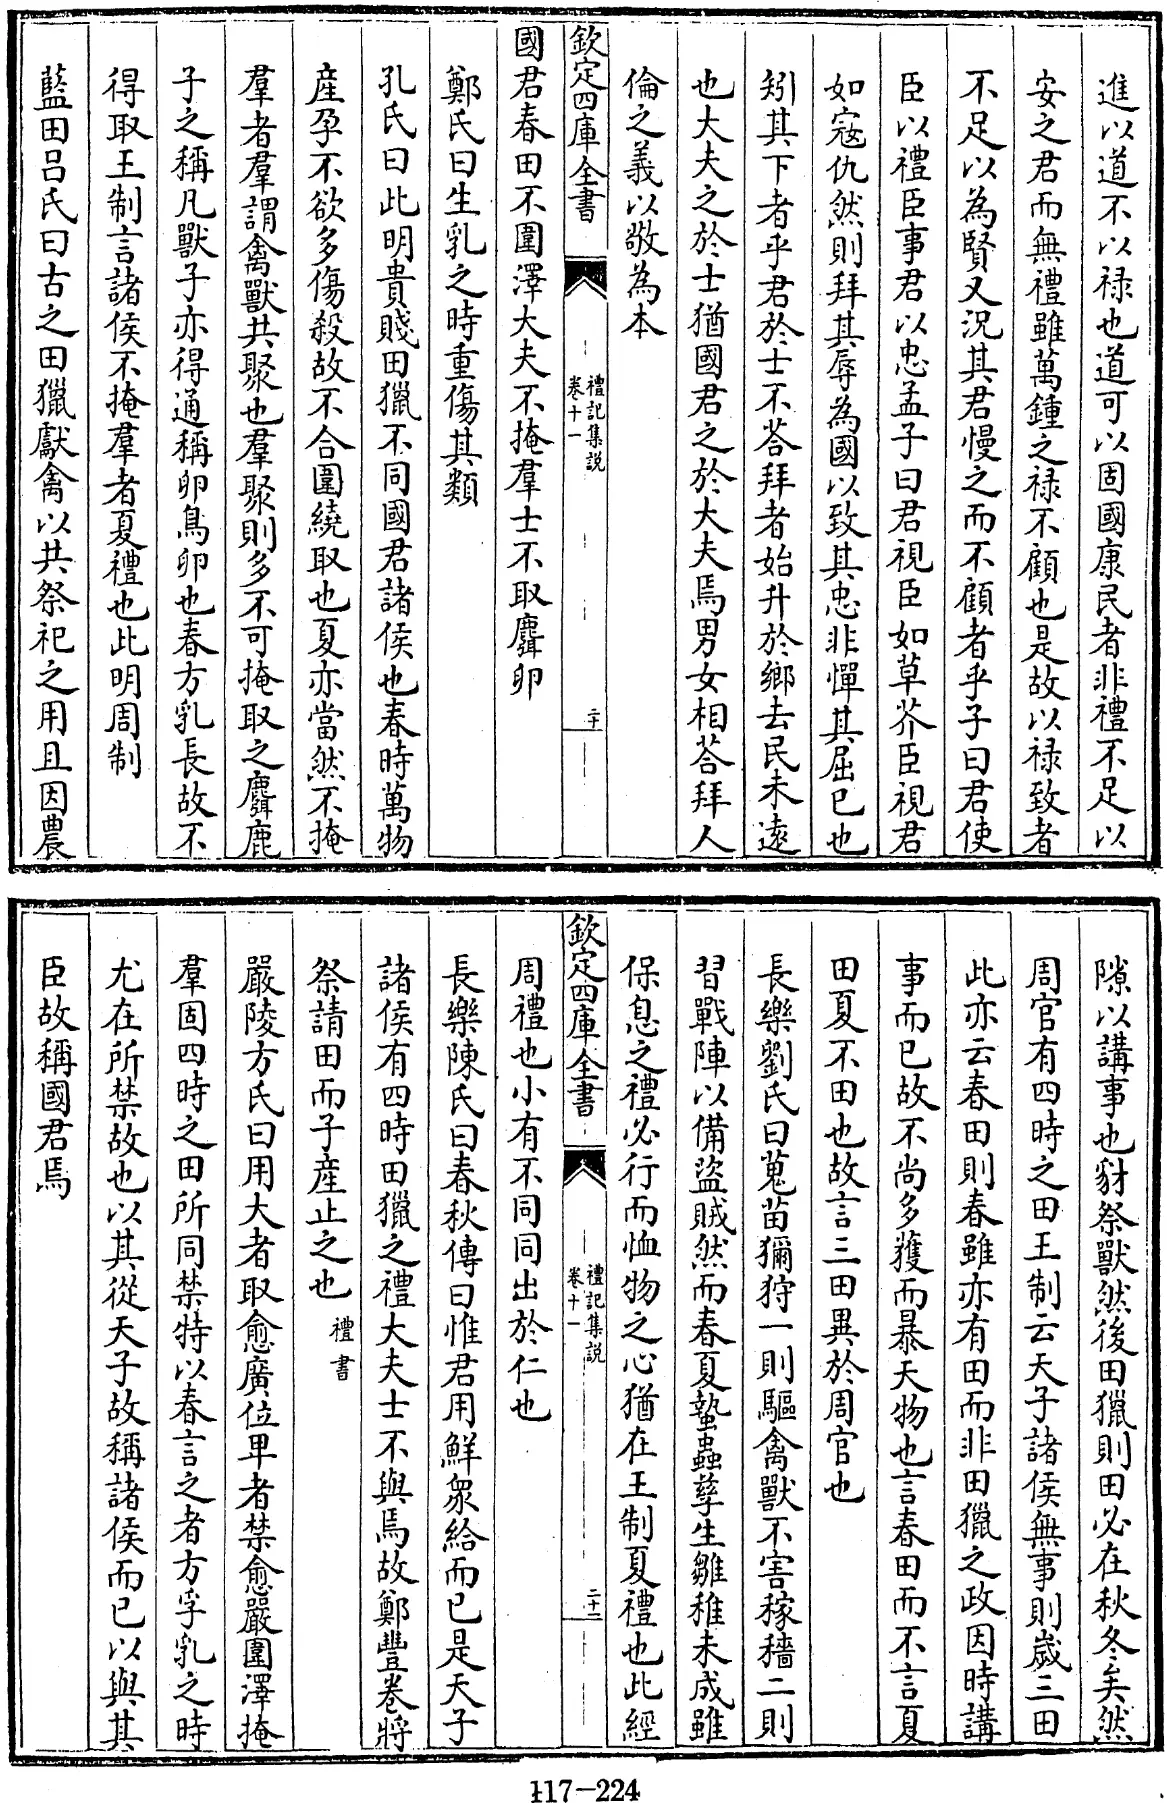 進以道不以禄也道可以固國康民者非禮不足以
安之君而無禮雖萬鍾之禄不顧也是故以禄致者
不足以為賢又況其君慢之而不顧者乎子曰君使
臣以禮臣事君以忠孟子曰君視臣如草芥臣視君
如寇仇然則拜其辱為國以致其忠非憚其屈已也
矧其下者乎君於士不荅拜者始升於鄉去民未逺
也大夫之於士猶國君之於大夫焉男女相荅拜人
倫之義以敬為本
欽定四庫全書
禮記集説
卷十一
二十
國君春田不圍澤大夫不掩羣士不取麛卵
鄭氏曰生乳之時重傷其類
孔氏曰此明貴賤田獵不同國君諸侯也春時萬物
産孕不欲多傷殺故不合圍繞取也夏亦當然不掩
羣者羣謂禽獸共聚也羣聚則多不可掩取之麛鹿
子之稱凡獸子亦得通稱卵鳥卵也春方乳長故不
得取王制言諸侯不掩羣者夏禮也此明周制
藍田吕氏曰古之田獵獻禽以共祭祀之用且因農
隙以講事也豺祭獸然後田獵則田必在秋冬矣然
周官有四時之田王制云天子諸侯無事則嵗三田
此亦云春田則春雖亦有田而非田獵之政因時講
事而已故不尚多獲而暴天物也言春田而不言夏
田夏不田也故言三田異於周官也
長樂劉氏曰蒐苗獮狩一則驅禽獸不害稼穡二則
習戰陣以備盜賊然而春夏蟄蟲孳生雛稚未成雖
保息之禮必行而恤物之心猶在王制夏禮也此經
欽定四庫全書
禮記集説
卷十一
二十一
周禮也小有不同同出於仁也
長樂陳氏曰春秋傳曰惟君用鮮衆給而已是天子
諸侯有四時田獵之禮大夫士不與焉故鄭豐卷將
祭請田而子産止之也 禮書
嚴陵方氏曰用大者取愈廣位卑者禁愈嚴圍澤掩
羣固四時之田所同禁特以春言之者方孚乳之時
尤在所禁故也以其從天子故稱諸侯而已以與其
臣故稱國君焉
117-224